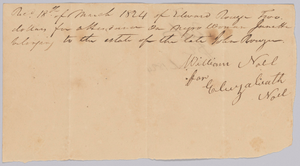 Rec'd 18th of March 1824 of Edward Rouzee Two
dollars for attendance on Negro Woman
belonging to the estate of the late John Rouzee
William Noel
for
Elizabeth
Noel